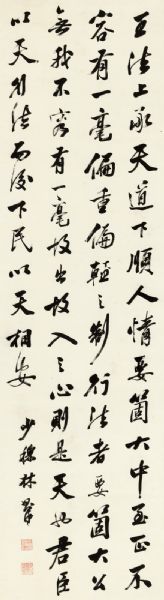 立法上承天道下順人情要箇大中至正不
容有一毫偏重偏輕之制行法者要箇大公
無我不容有一毫故出故入之心則是天也君臣
以天行法而後下民以天相安
少穆林